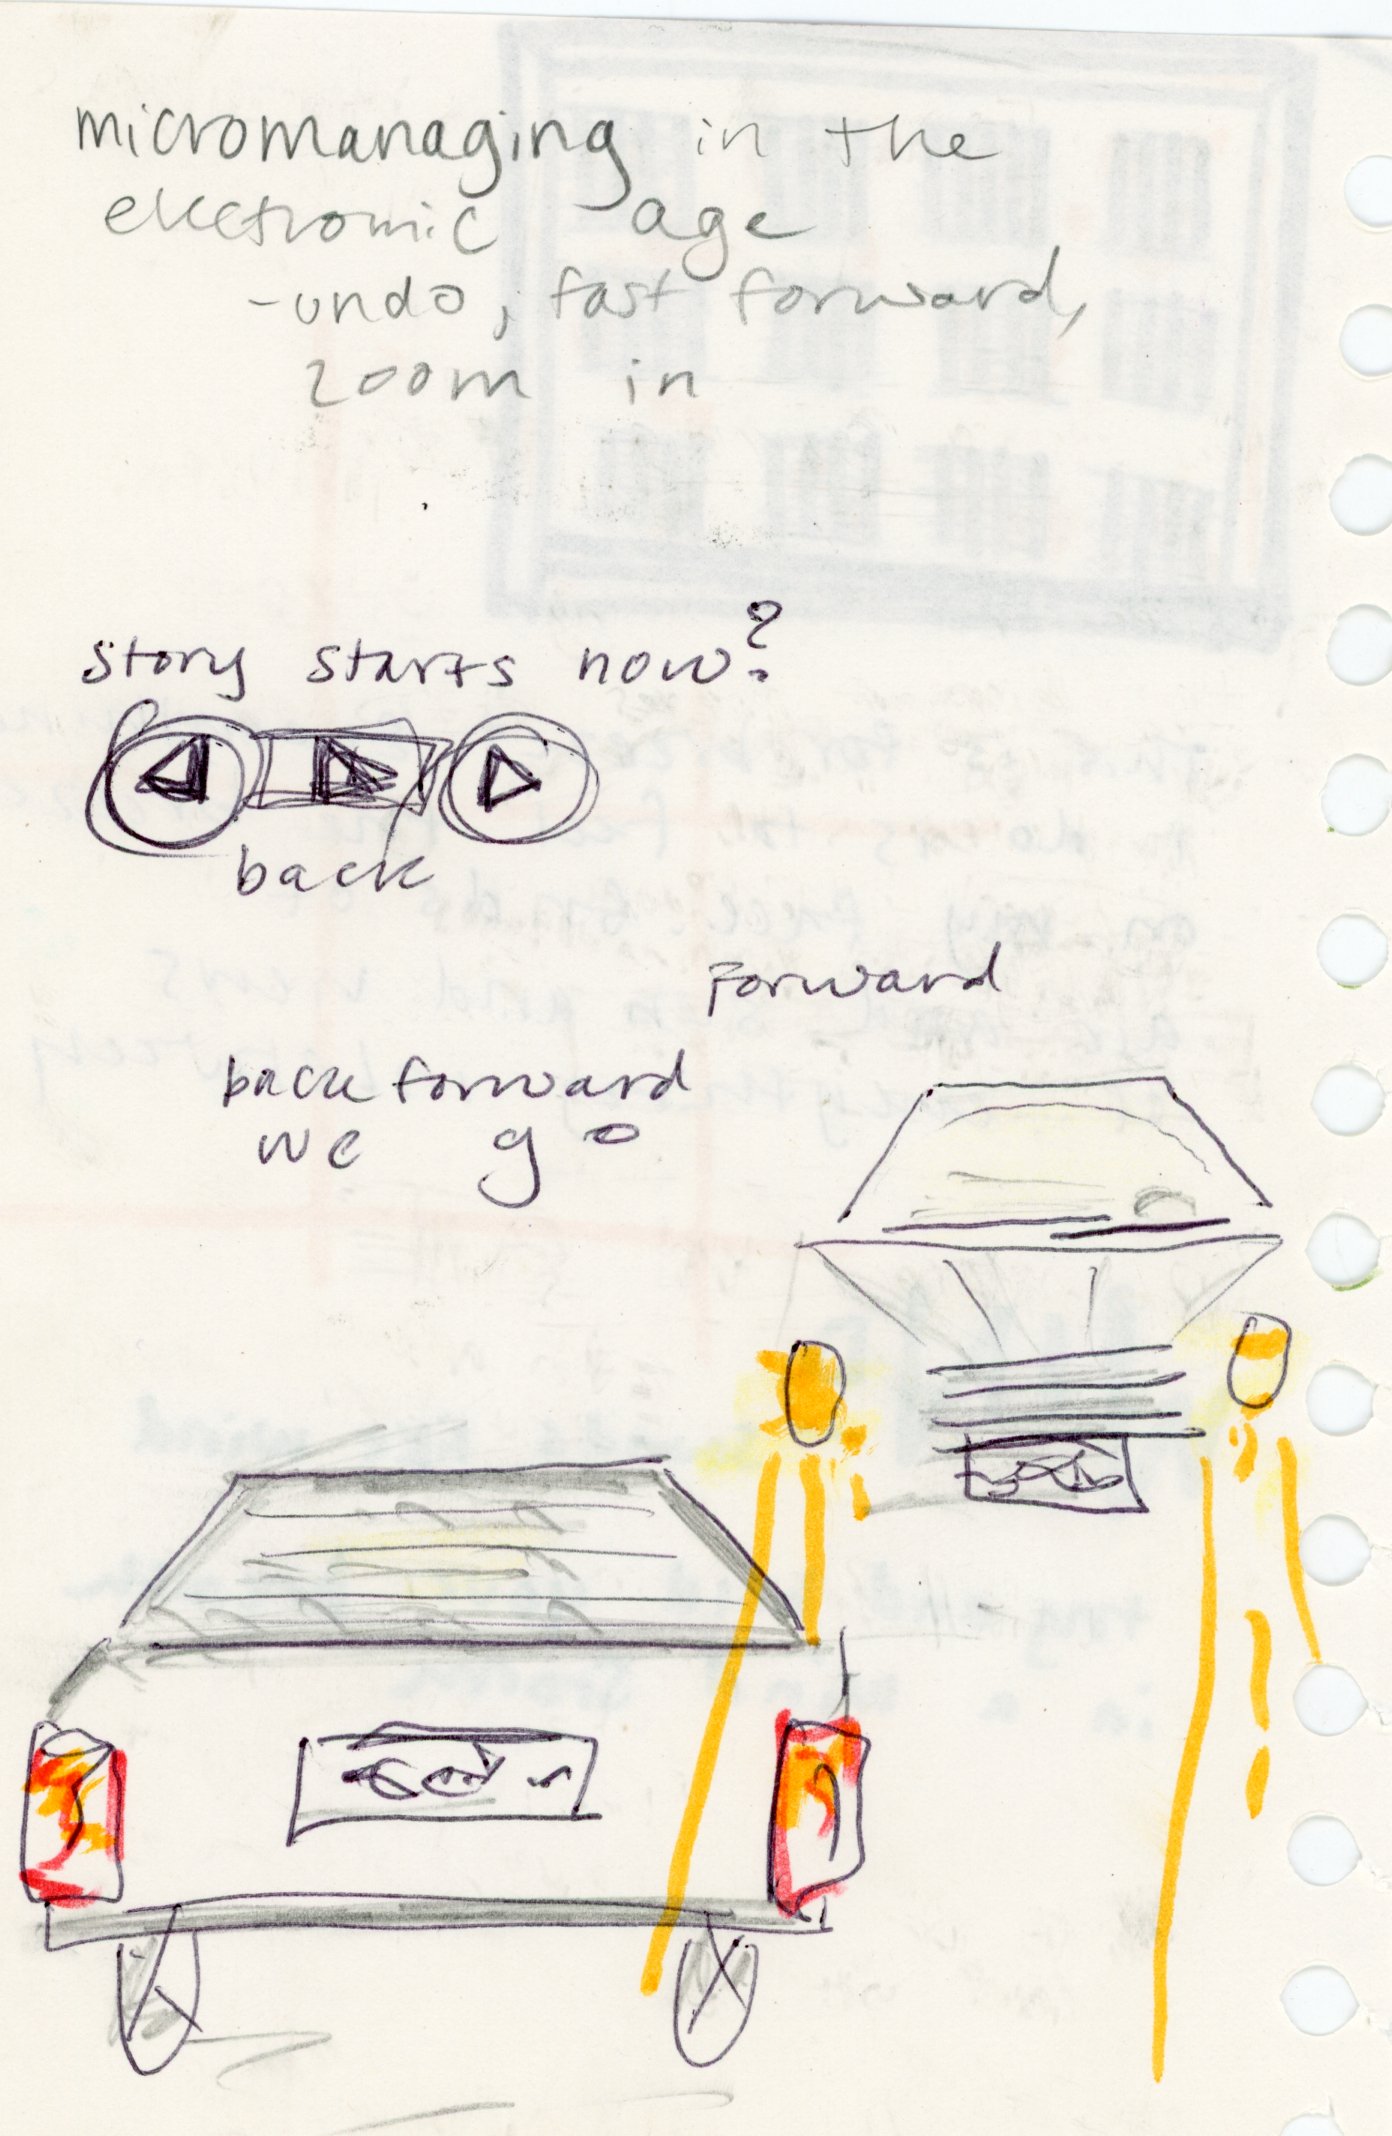 micromanaging in the
electronic age
-undo, fast forward,
zoom in
story starts now?
back
Forward
back forward
we go